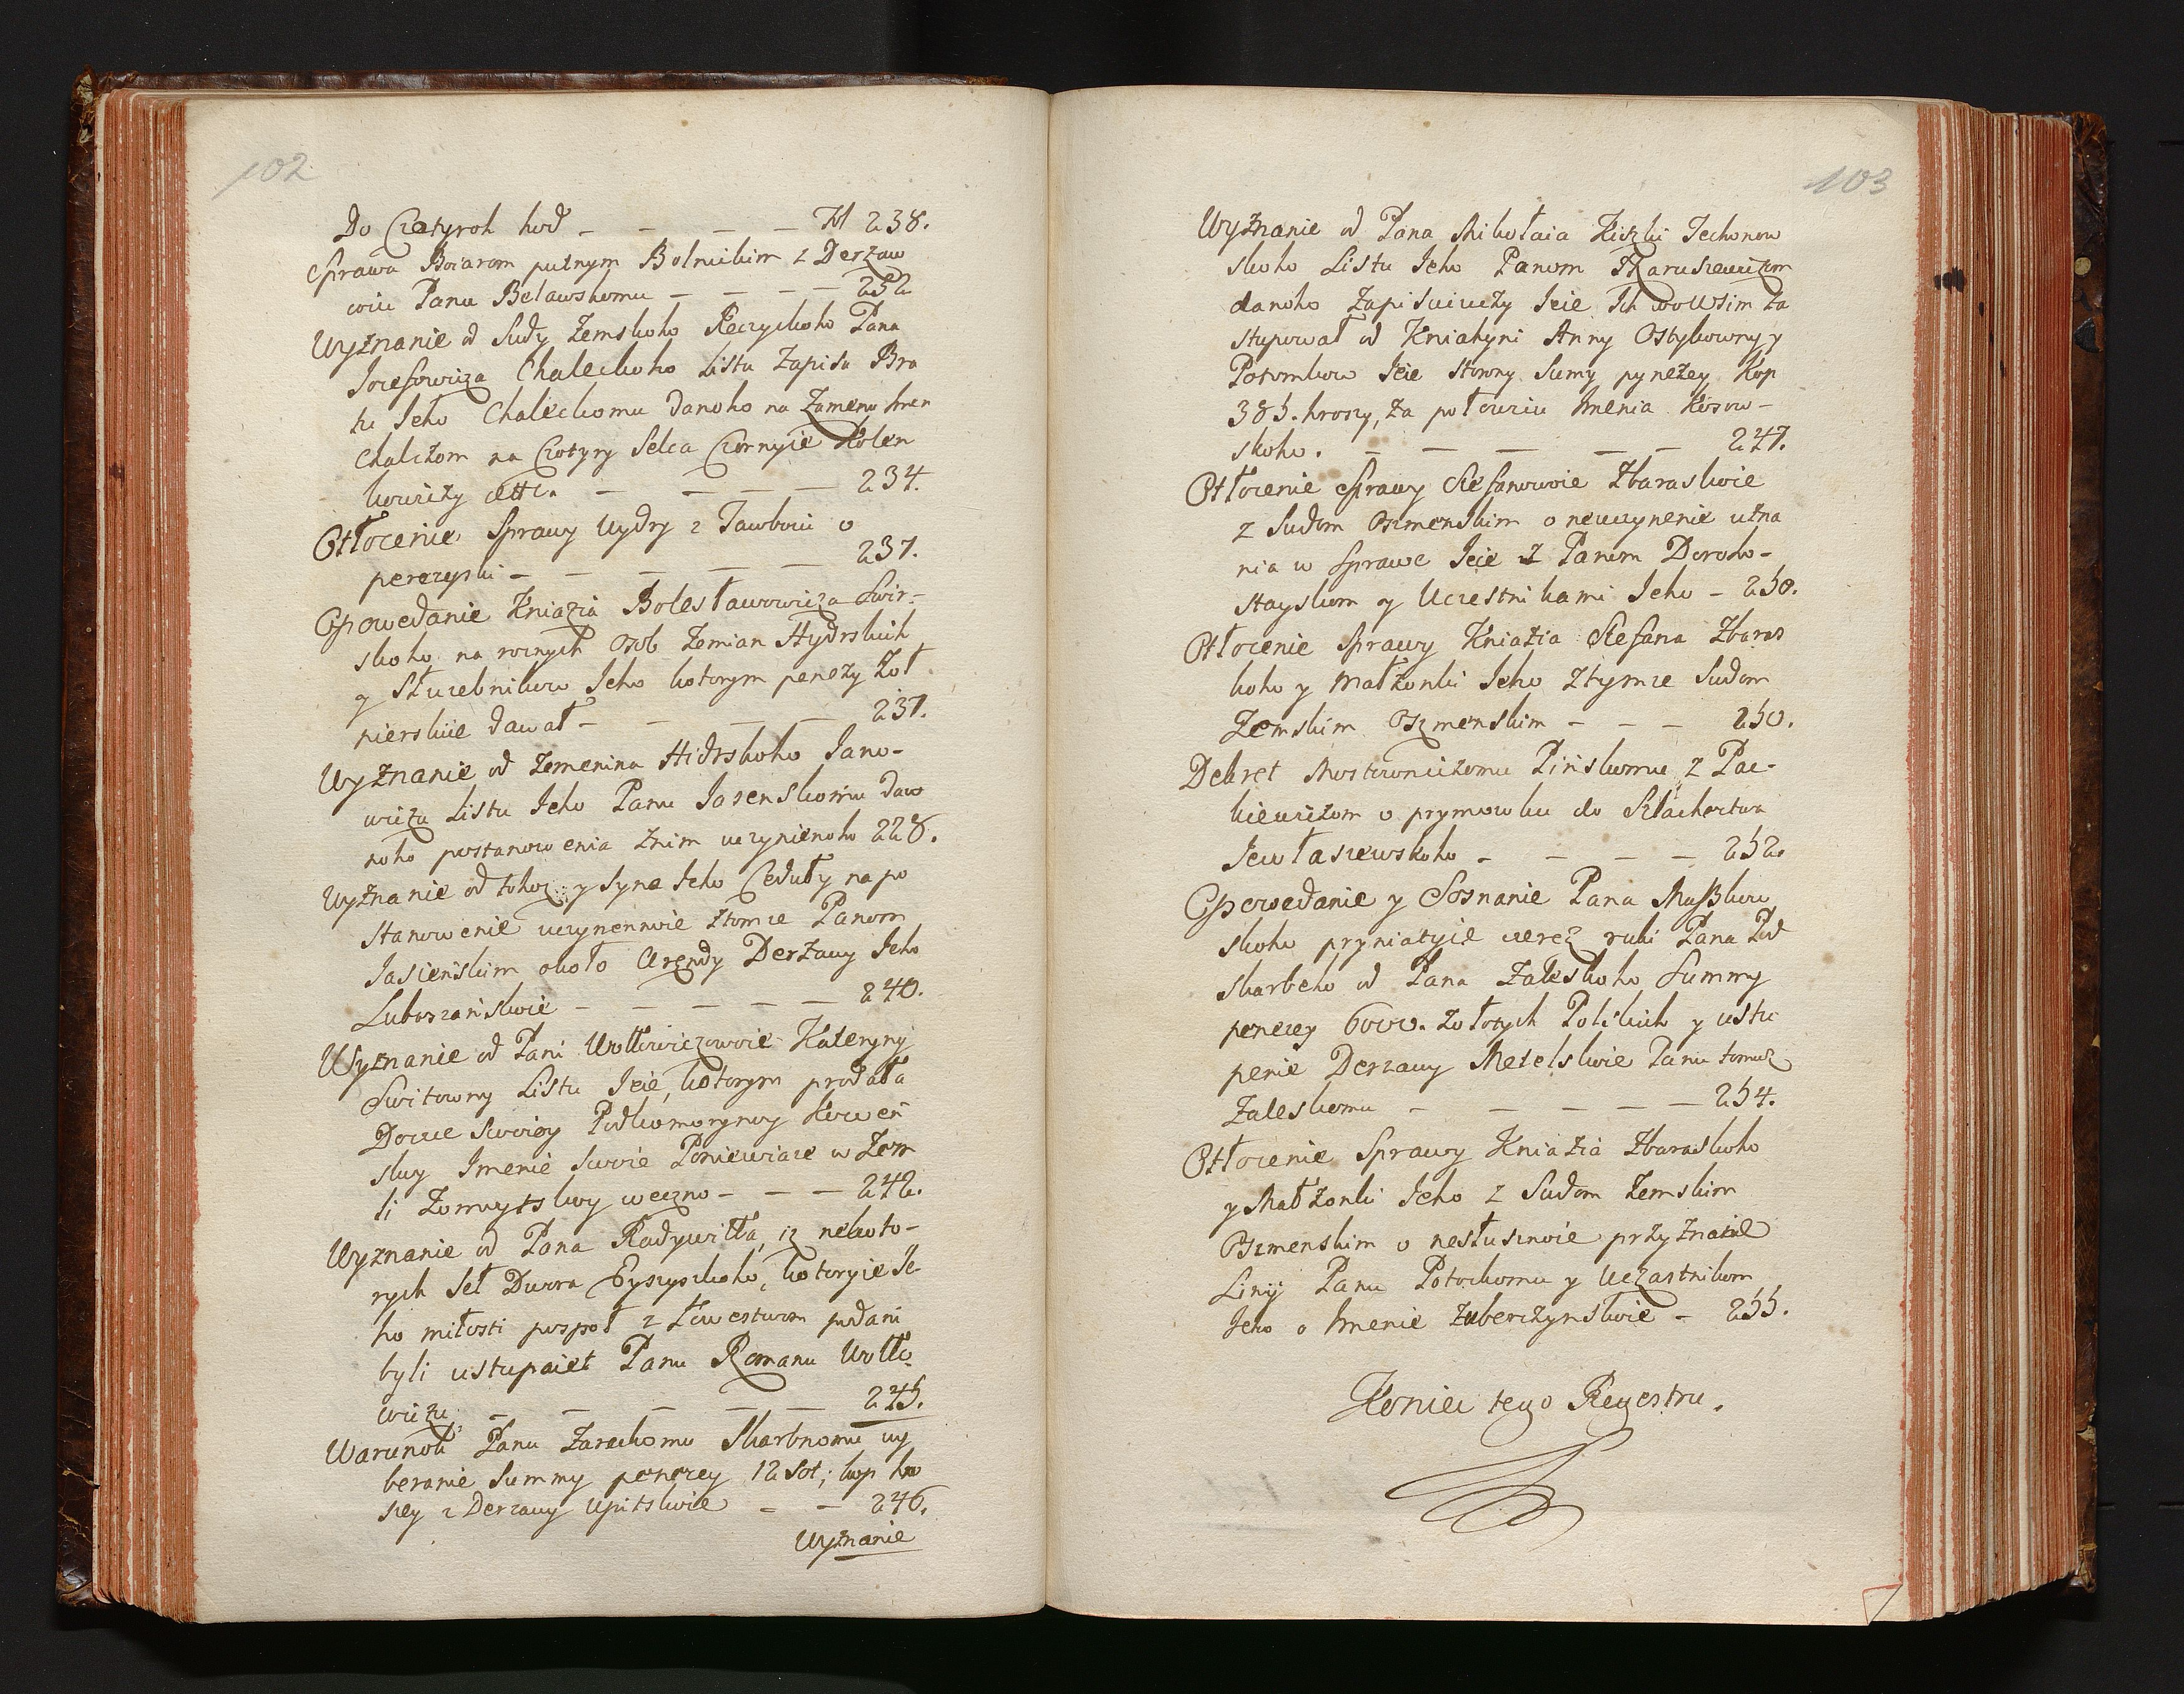 102
Do Czatyroh hod – – – – – Fol 238.
Sprawa Boiarom putnym Bolnickim z Derżaw
ciu Panu Belawskomu – – – – 232
Wyżnanie od Sudy Zemskoho Reczyckoho Pana
Jozefowicza Chaleckoho Listu Zapisu Bra
tu Jeho Chaleckomu danoho na Zamenu Imen
Chalczom na Czotyry Selca Czornyie Kolen
kowiczy etc. – – – – 234.
Otłożenie Sprawy Wydry z Jawbociu o
perezyski – – – – – 237.
Opowedanie Kniazia Bolesławowicza Swir-
skoho na roznych Osob Zemian Hydrskich
y Służebnikow Jeho kotorym penezy Żoł
nierskiie dawał – – – – 237.
Wyżnanie od Zemenina Hidrskoho Jano-
wicza Listu Jeho Panu Jasenskomu daw
noho postanowenia Znim uczynienoho 228.
Wyżnanie od tohoż y Syna Jeho Ceduły na po
stanowenie uczynennoie Ztomże Panom
Jasieńskim około Arendy Derżawy Jeho
Luboszańskoie – – – – – 240.
Wyznanie od Pani Wołłowiczowoie Kateryny
Switowny Listu Jeie, kotorym prodała
Docce Swoiey Podkomorynoy Kowen
skoy Imenie Swoie Poniewiaze w Zem
li Zomoytskoy weczno – – – 242.
Wyznanie od Pana Radywiłła, iż nekoto-
rych Seł Dwora Eyszyszkoho, kotoryie Je
ho miłosti pospoł z Lewestwom podani
byli ustupaiet Panu Romanu Wołło
wiczu – – – – – 245.
Warunok Panu Zareckomu Skarbnomu wy
beranie Summy penezey 12 Sot; kop hro
szey z Derzawy Upitskoie – – 246.
Wyżnanie
103
Wyżnanie od Pana Mikołaia Kiszki Techonow
skoho Listu Jeho Panom Haruszewiczom
danoho Zapisuiuczy Jeie Ich wo Wsim Za
stupował od Kniahyni Anny Ostykowny y
Potomkow Jeie Strony Sumy pynezey Kop
385. hroszy, Za połowiu Imenia Kosow-
skoho. – – – – – 247.
Otłożenie Sprawy Stefanowoie Zbaraskoie
z Sudom Oszmenskim o neuczynenie uzna
nia w Sprawe Jeie z Panem Doroho-
stayskom y Uczestnikami Jeho – 250.
Otłożenie Sprawy Kniazia Stefana Zbaras
koho y Małżonki Jeho Ztymże Sudom
Zemskim Oszmenskim – – – 250.
Dekret Mostowniczomu Pińskomu z Pac-
kiewiczom o prymowku do Szlachectwa
Jewłaszewskoho – – – – 252.
Opowedanie y Soznanie Pana Myszkow
skoho pryniatyie czerez ruki Pana Pod
skarbeho od Pana Zaleskoho Summy
penezey 6000. Zołotych Polskich y ustu
penie Derzawy Metelskoie Panu tomuż
Zaleskomu – – – – – 254.
Otłożenie Sprawy Kniazia Zbaraskoho
y Małżonki Jeho z Sudom Zemskim
Oszmenskim o nesłusznoie przyznanie
Linij Panu Potockomu y Uczastnikom
Jeho o Imenie Zuberczynskoie – 255.
Koniec tego Regestru.